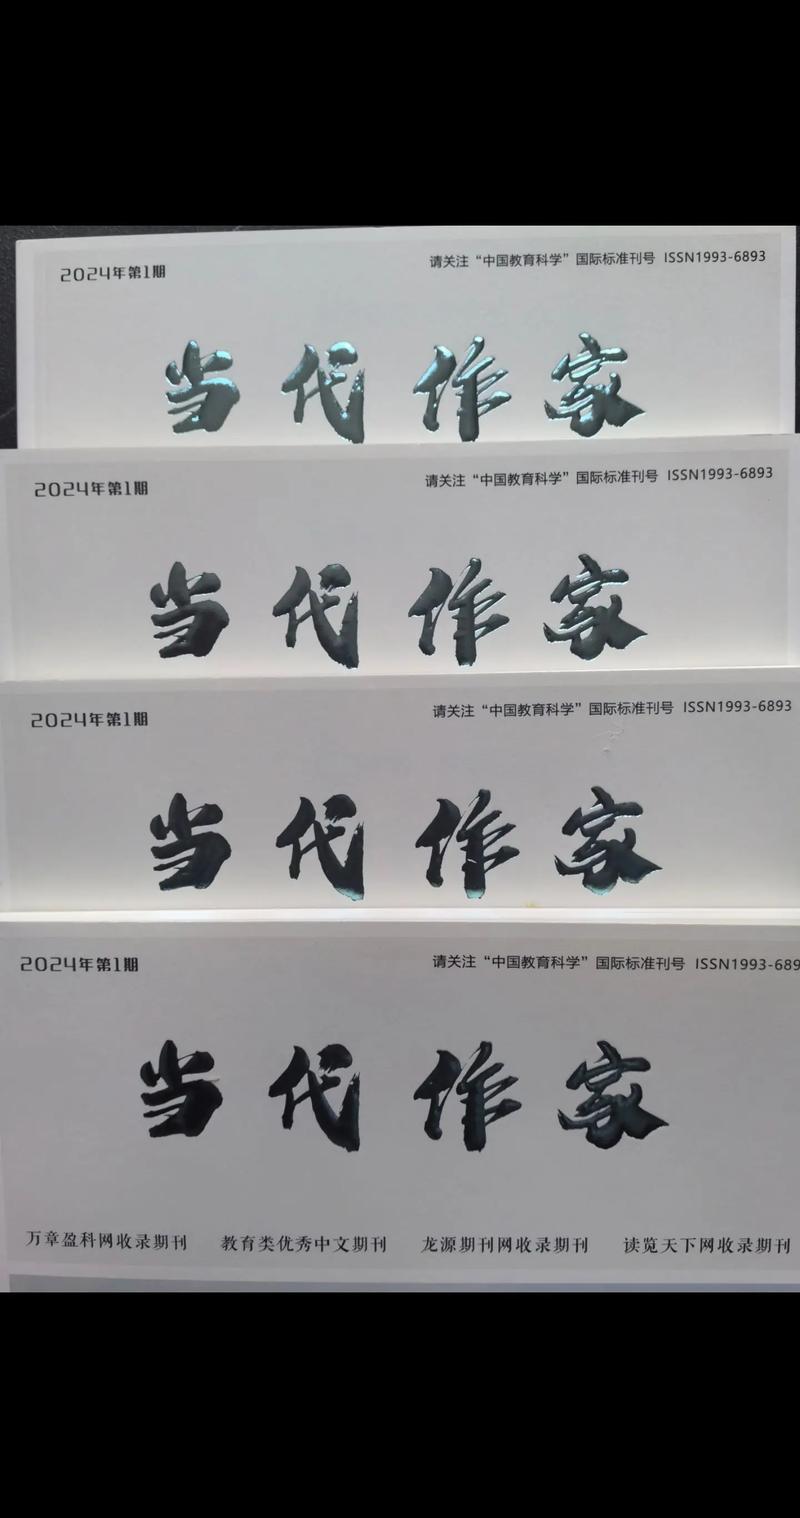 2024年第1期
请关注“中国教育科学”国际标准刊号 ISSN1993-6893
当代作家
2024年第1期
请关注“中国教育科学”国际标准刊号 ISSN1993-6893
当代作家
2024年第1期
请关注“中国教育科学”国际标准刊号 ISSN1993-6893
当代作家
2024年第1期
请关注“中国教育科学”国际标准刊号 ISSN1993-689
当代作家
万章盈科网收录期刊 教育类优秀中文期刊 龙源期刊网收录期刊 读览天下网收录期刊